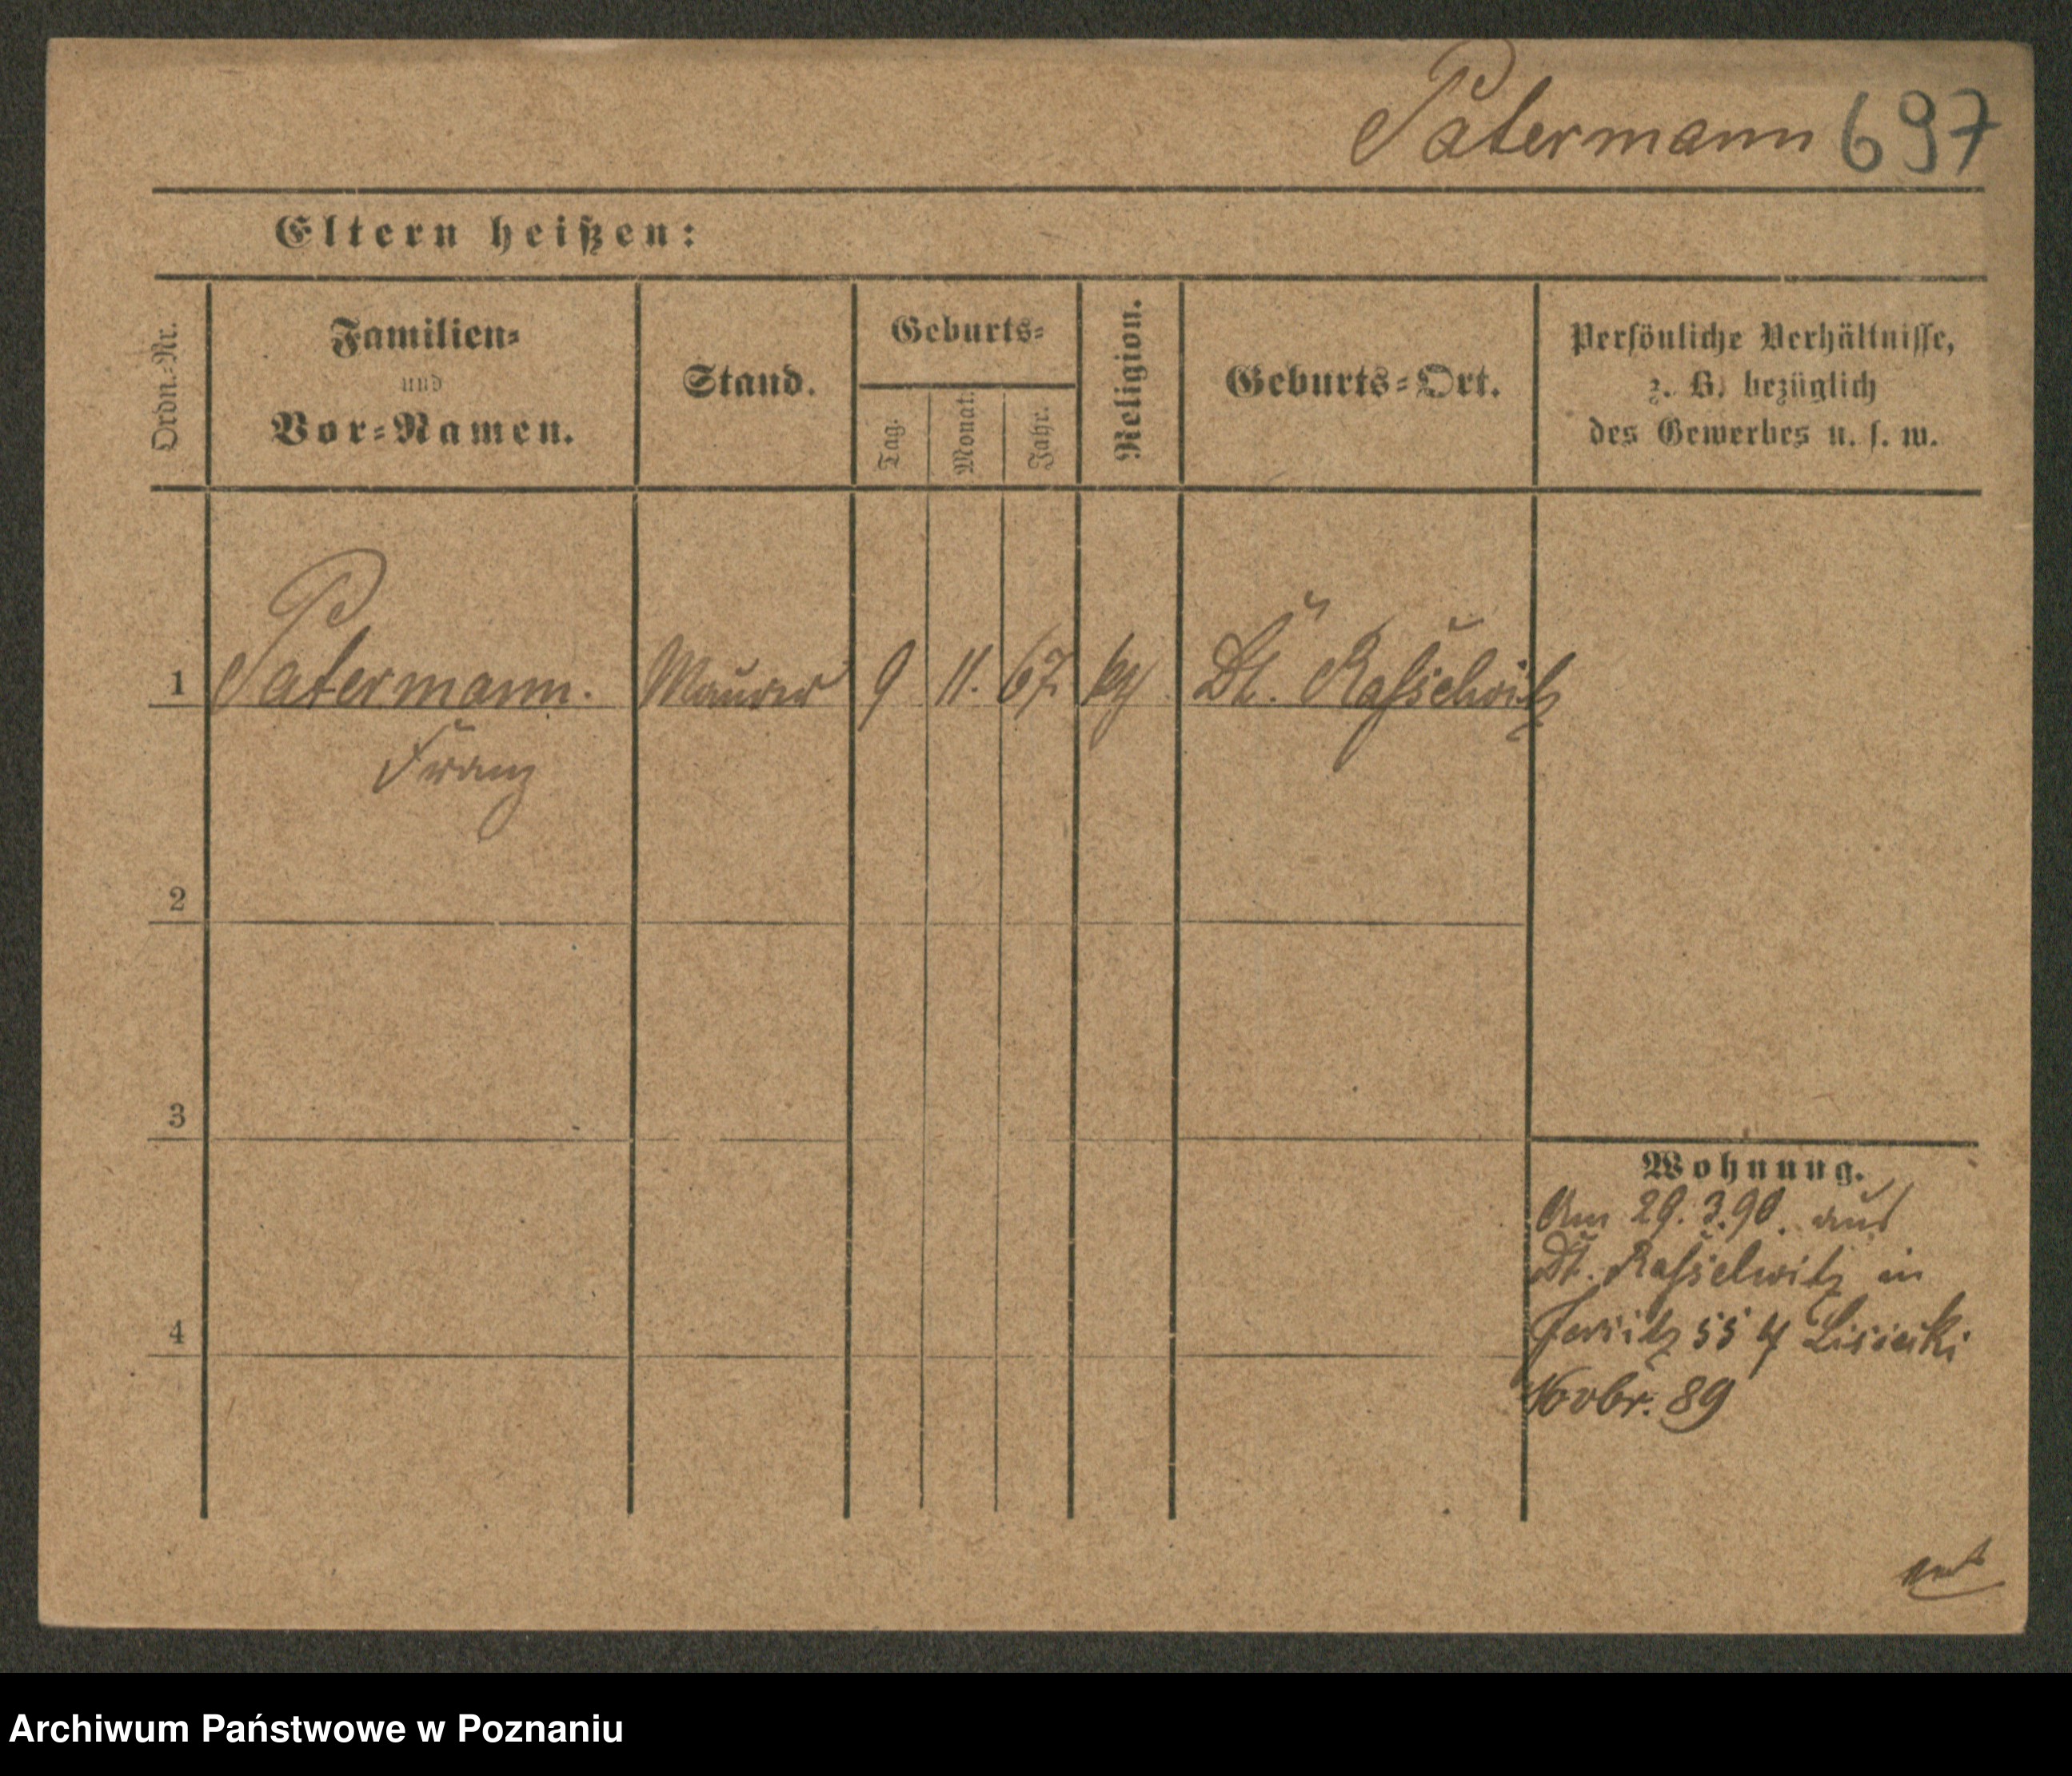 Patermann 697
Eltern heißen:
Ordn.-Nr.
Familien-
und
Vor-Namen.
Stand.
Geburts-
Tag.
Monat.
Jahr.
Religion.
Geburts-Ort.
Persönliche Verhältnisse,
z. B. bezüglich
des Gewerbes u. s. w.
1 Patermann. Maurer 9 11. 67. Dt. Rasselwitz
Franz
2
3
4
Wohnung.
Am 29.3.90. aus
Dt. Rasselwitz in
Jersitz 55 Lisiecki
Novbr. 89
Archiwum Państwowe w Poznaniu